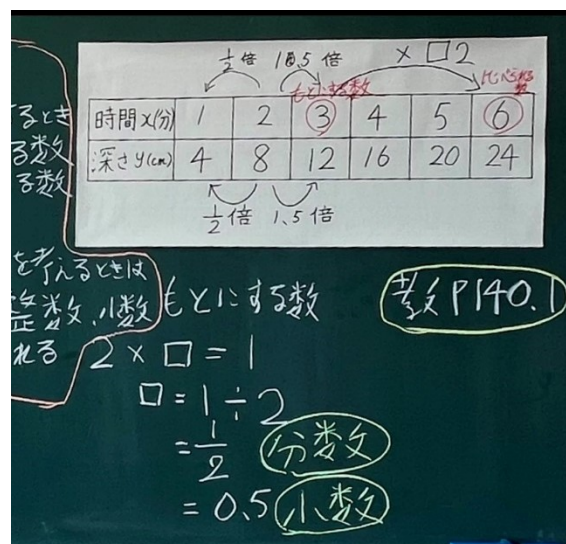 1/2倍 1.5倍 × □2
もとにする数 比べられる数
時間x(分) 1 2 3 4 5 6
深さy(cm) 4 8 12 16 20 24
1/2倍 1.5倍
るとき
る数
る数
を考えるときは
整数、小数
れる
もとにする数
教 P140.1
2 × □ = 1
□ = 1 ÷ 2
= 1/2 分数
= 0.5 小数